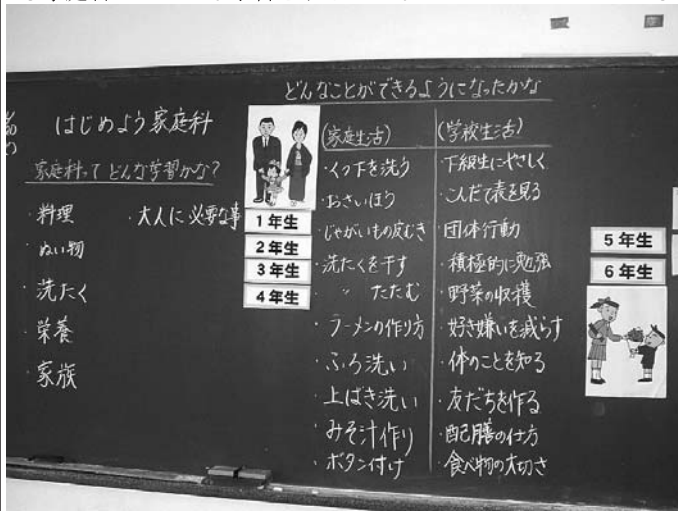 はじめよう家庭科
家庭科って どんな学習かな?
・料理
・大人に必要な事
・ぬい物
・洗たく
・栄養
・家族
どんなことができるようになったかな
1年生
2年生
3年生
4年生
(家庭生活)
・くつ下を洗う
・おさいほう
・じゃがいもの皮むき
・洗たくを干す
・〃 たたむ
・ラーメンの作り方
・ふろ洗い
・上ばき洗い
・みそ汁作り
・ボタン付け
(学校生活)
・下級生にやさしく
・こんだて表を見る
・団体行動
・積極的に勉強
・野菜の収穫
・好き嫌いを減らす
・体のことを知る
・友だちを作る
・配膳の仕方
・食べ物の大切さ
5年生
6年生